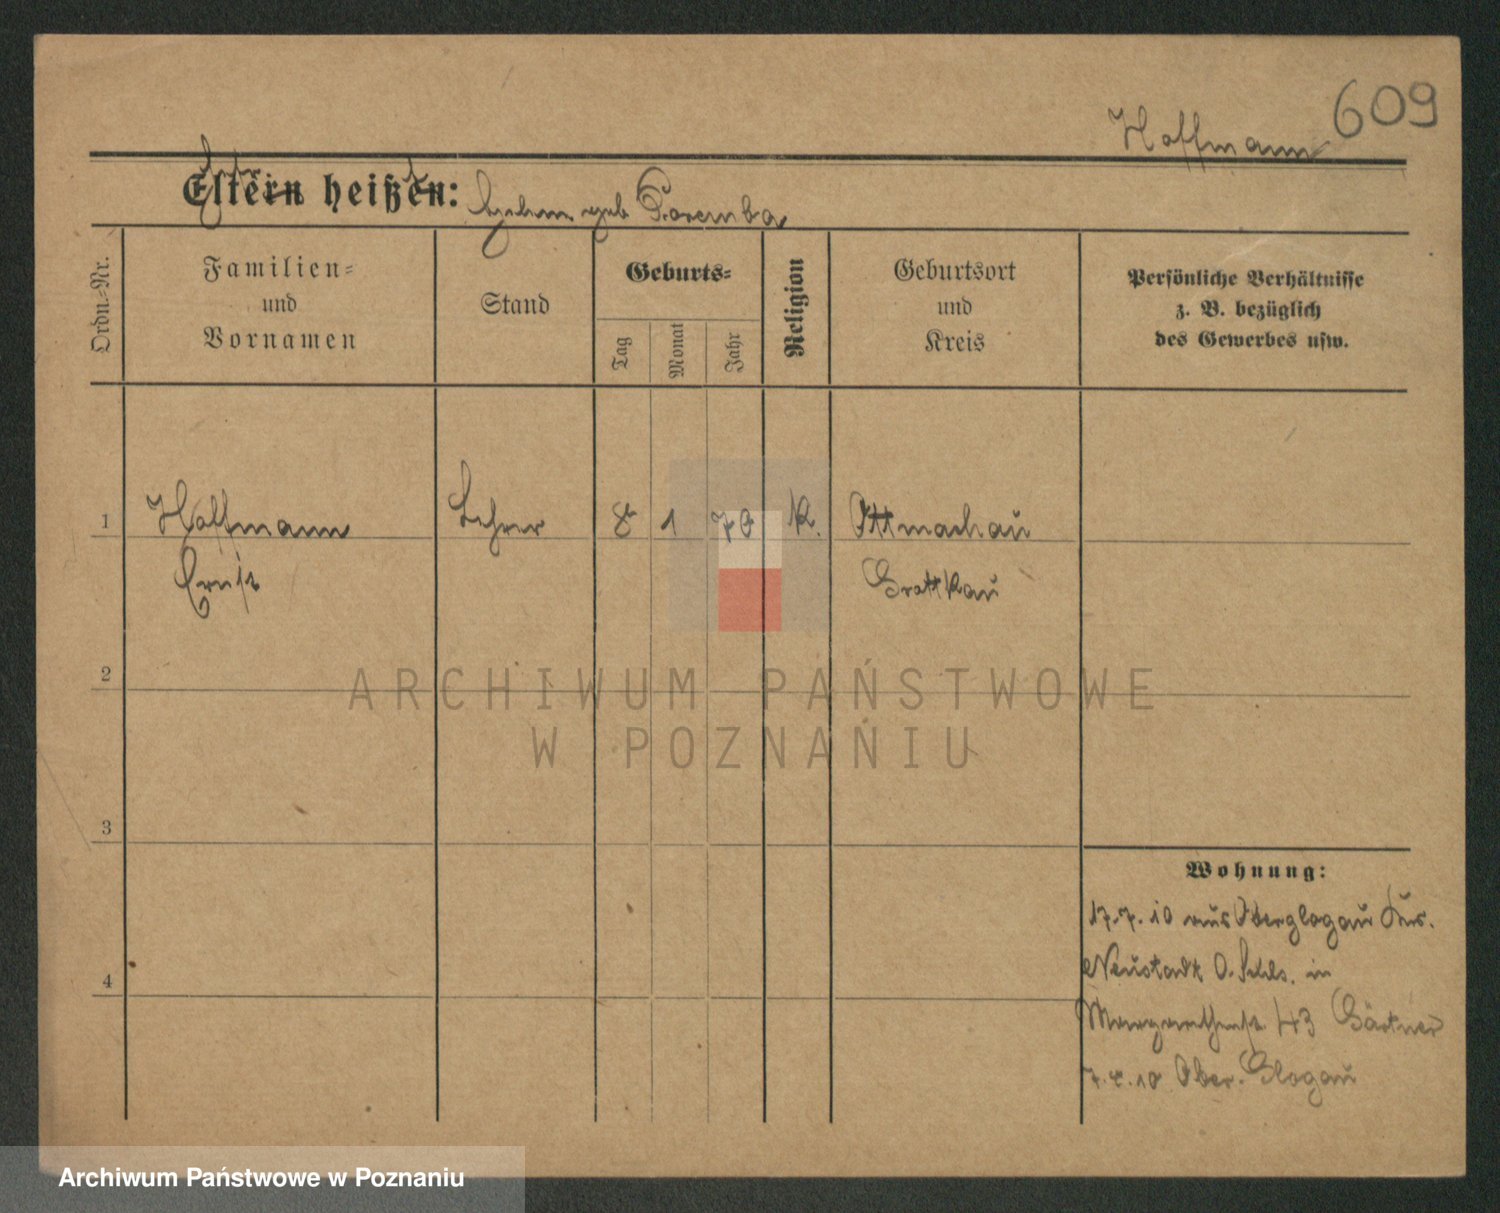 609
Hoffmann
Eltern heißen: geb Poremba
Ordn.=Nr.
Familien=
und
Vornamen
Stand
Geburts=
Tag
Monat
Jahr
Religion
Geburtsort
und
Kreis
Persönliche Verhältnisse
z. B. bezüglich
des Gewerbes usw.
1 Hoffmann Lehrer 8 1 70 K. Ottmachau
Ernst Grottkau
2
3
4
Wohnung:
17.7.10 aus Oberglogau
Neustadt O. Schls. in
Margarethenstr. 43 Gärtner
7.8.10 Ober. Glogau
ARCHIWUM PAŃSTWOWE
W POZNANIU
Archiwum Państwowe w Poznaniu